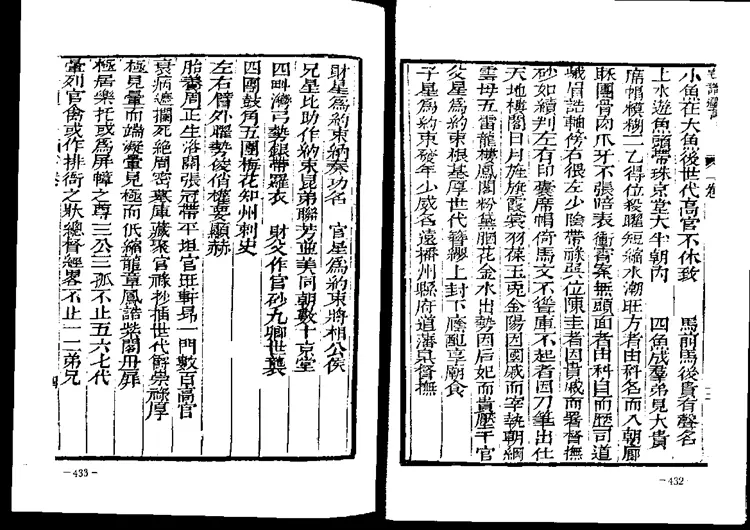 小魚在大魚後世代高官不休致　馬前馬後貴有聲名
上水遊魚頭帶珠京堂大半朝內　四魚成羣弟兄大貴
席帽模糊一乙得位殺曜短縮水潮旺方者由科名而入朝廊
肷團骨肉爪牙不張暗表衝官案無頭面者由科目而歷司道
峨眉誥軸傍右很左少陰帶祿與位陳圭者因貴戚而署督撫
砂如績判左右印囊席帽倚馬文不聳車不起者因刀筆出仕
天地樓閣日月旌旗霞裳羽葆玉兎金陽因國戚而宰執朝綱
雲母五雷龍樓鳳閣粉黛胭花金水出勢因后妃而貴壓千官
父星為約束根基厚世代簪纓上封下廕配享廟食
子星為約束發年少威名遠播州縣府道藩臬督撫
432
財星為約束納奏功名　官星為約束將相公侯
兄星比助作約束昆弟聯芳並美同朝數十京堂
四畔灣弓勢很帶羅衣　財父作官砂九卿世襲
四圍鼓角五團梅花知州刺史
左右僭外曜勢倰俏權要顯赫
胎養周正生洛關張冠帶平坦官旺軒昻一門數百高官
衰病遮攔死絶周密墓庫藏聚官祿抄插世代爵崇祿厚
極見暈而端凝暈見極而低縮龍章鳳誥紫閣丹扉
極居樂托或為屏幛之尊三公三孤不止五六七代
暈列官禽或作排衙之狀總督經畧不止一二弟兄
433